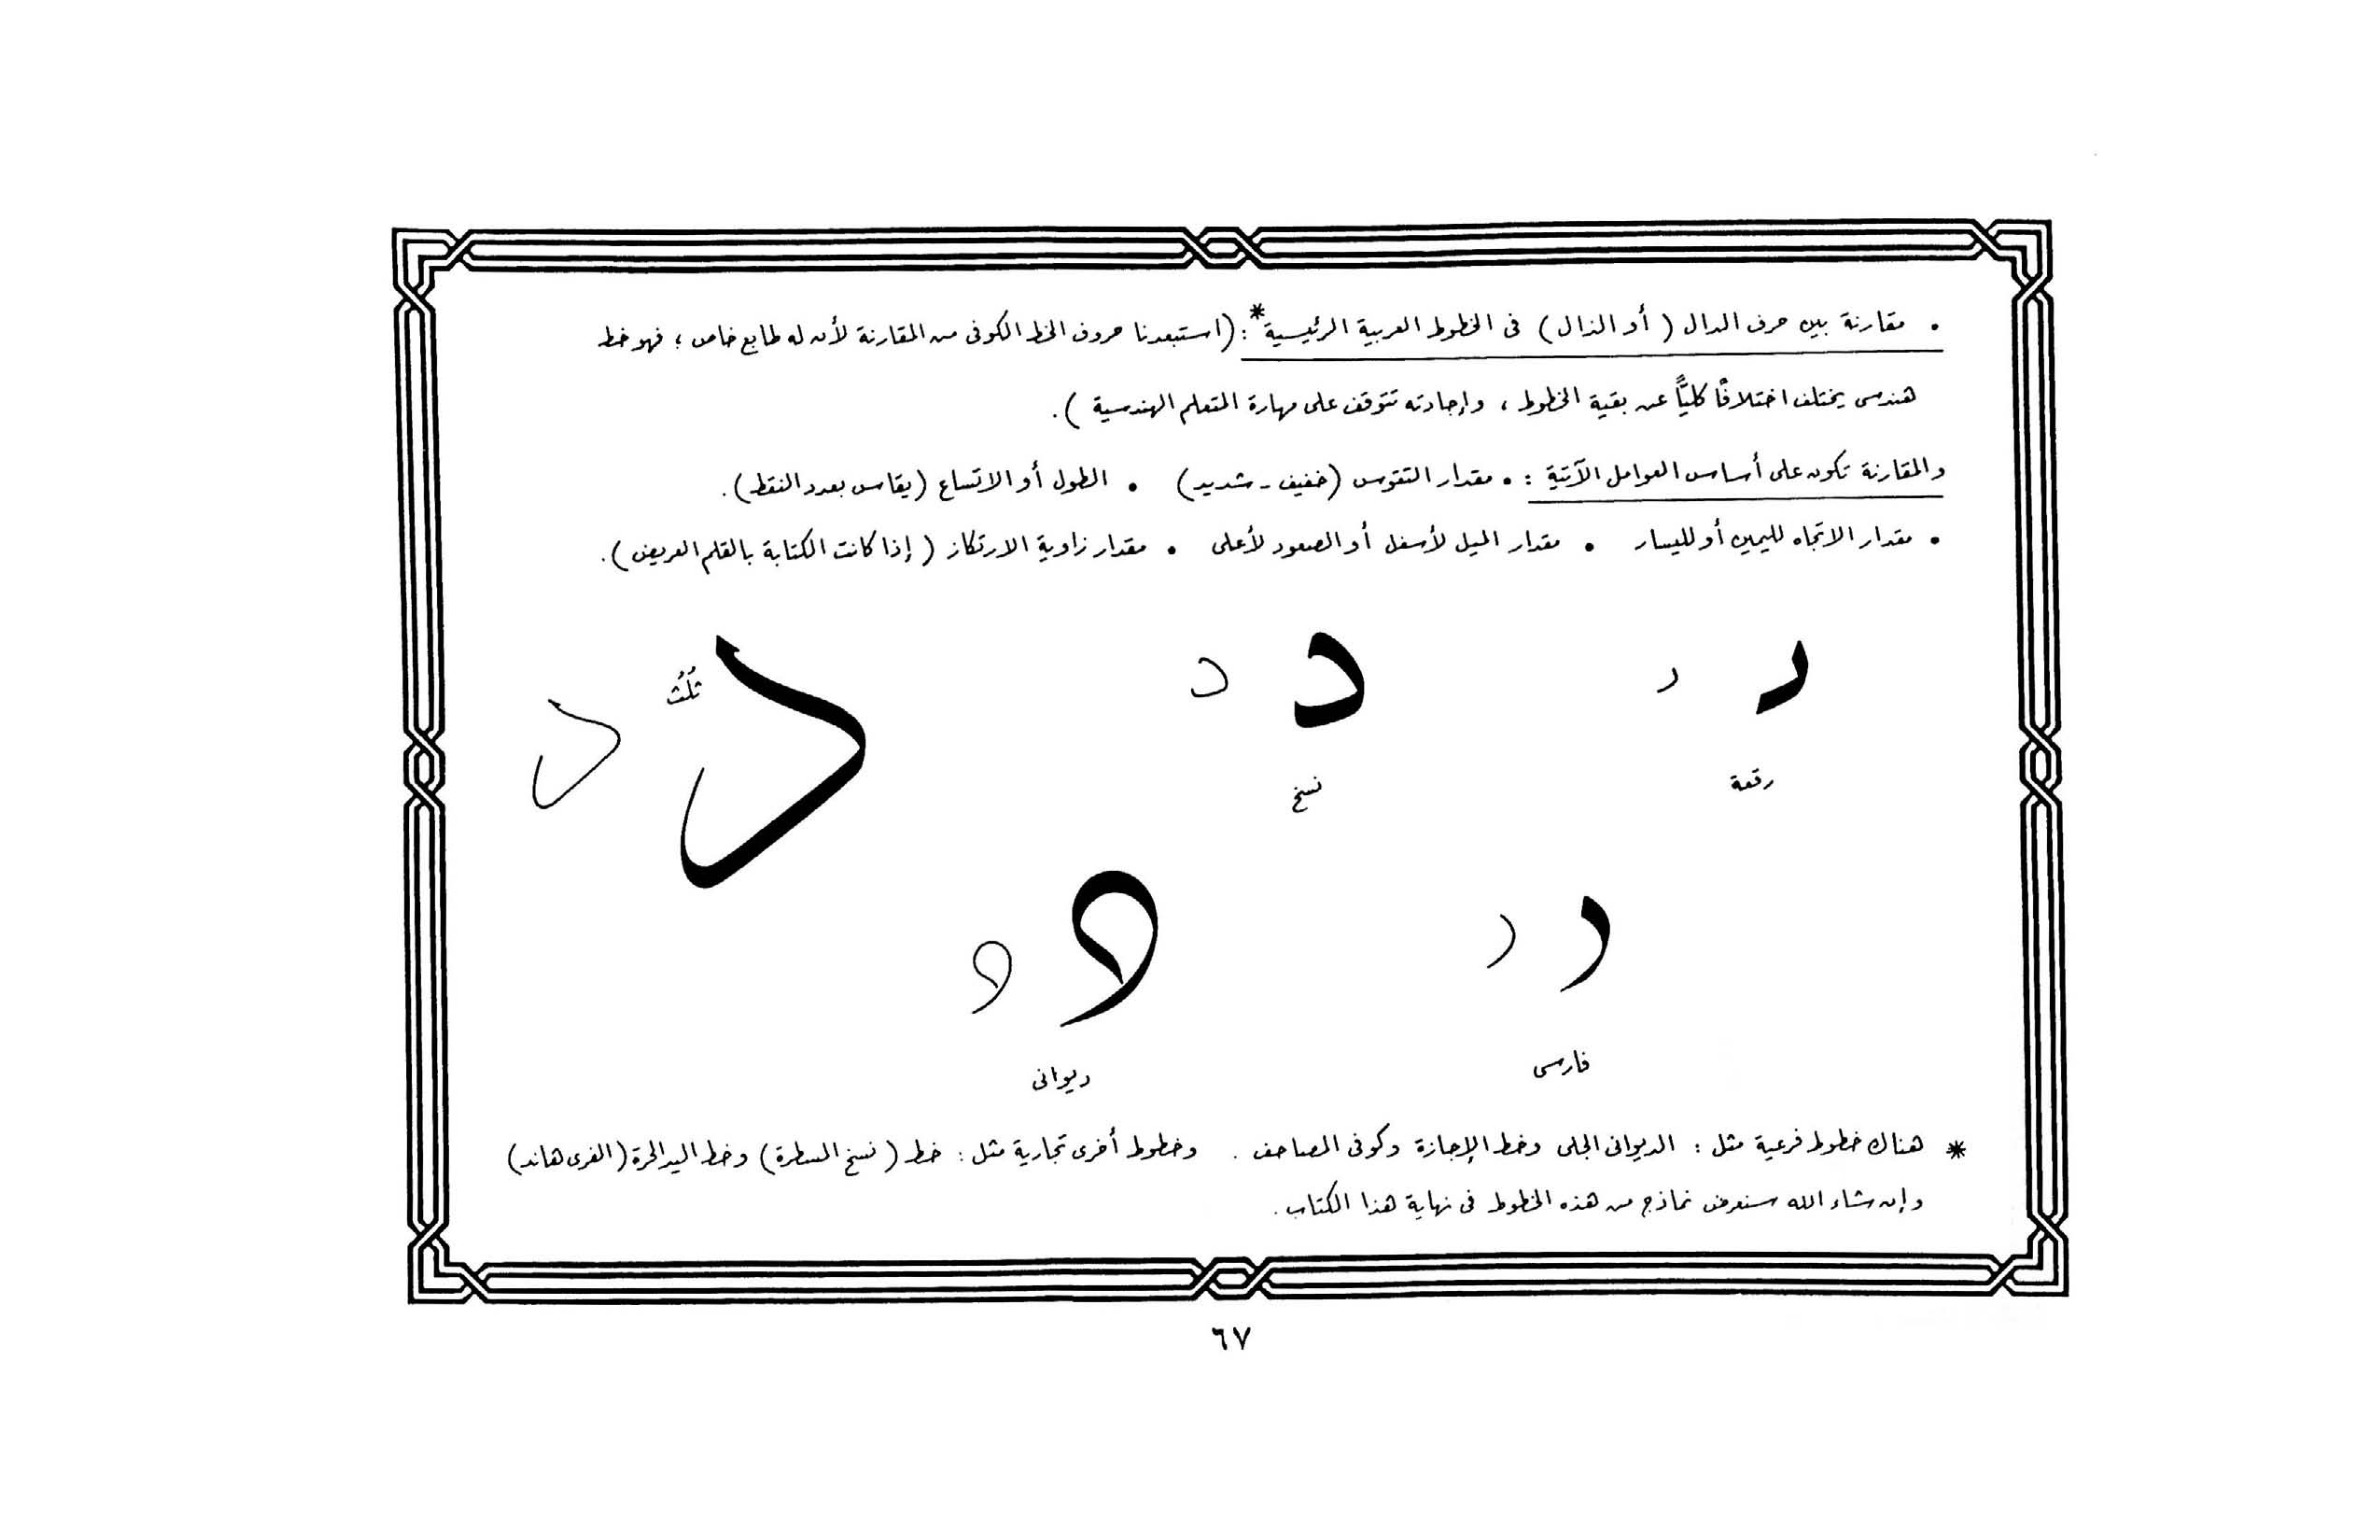 • مقارنة بين حرف الدال ( أو الذال ) فى الخطوط العربية الرئيسية* : (استبعدنا حروف الخط الكوفى من المقارنة لأن له طابع خاص ؛ فهو خط
هندسى يختلف اختلافًا كليًّا عن بقية الخطوط ، وإجادته تتوقف على مهارة المتعلم الهندسية ).
والمقارنة تكون على أساس العوامل الآتية : • مقدار التقوس (خفيف - شديد) • الطول أو الاتساع (يقاس بعدد النقط).
• مقدار الاتجاه لليمين أو لليسار • مقدار الميل لأسفل أو الصعود لأعلى • مقدار زاوية الارتكاز ( إذا كانت الكتابة بالقلم العريض ).
د د د د د د
ثُلُث
رقعة
نسخ
د د د د
فارسى
ديوانى
* هناك خطوط فرعية مثل : الديوانى الجلى وخط الإجازة وكوفى المصاحف . وخطوط أخرى تجارية مثل : خط ( نسخ المسطرة ) وخط اليد الحرة (الفرى هاند)
وإن شاء الله سنعرض نماذج من هذه الخطوط فى نهاية هذا الكتاب .
٦٧